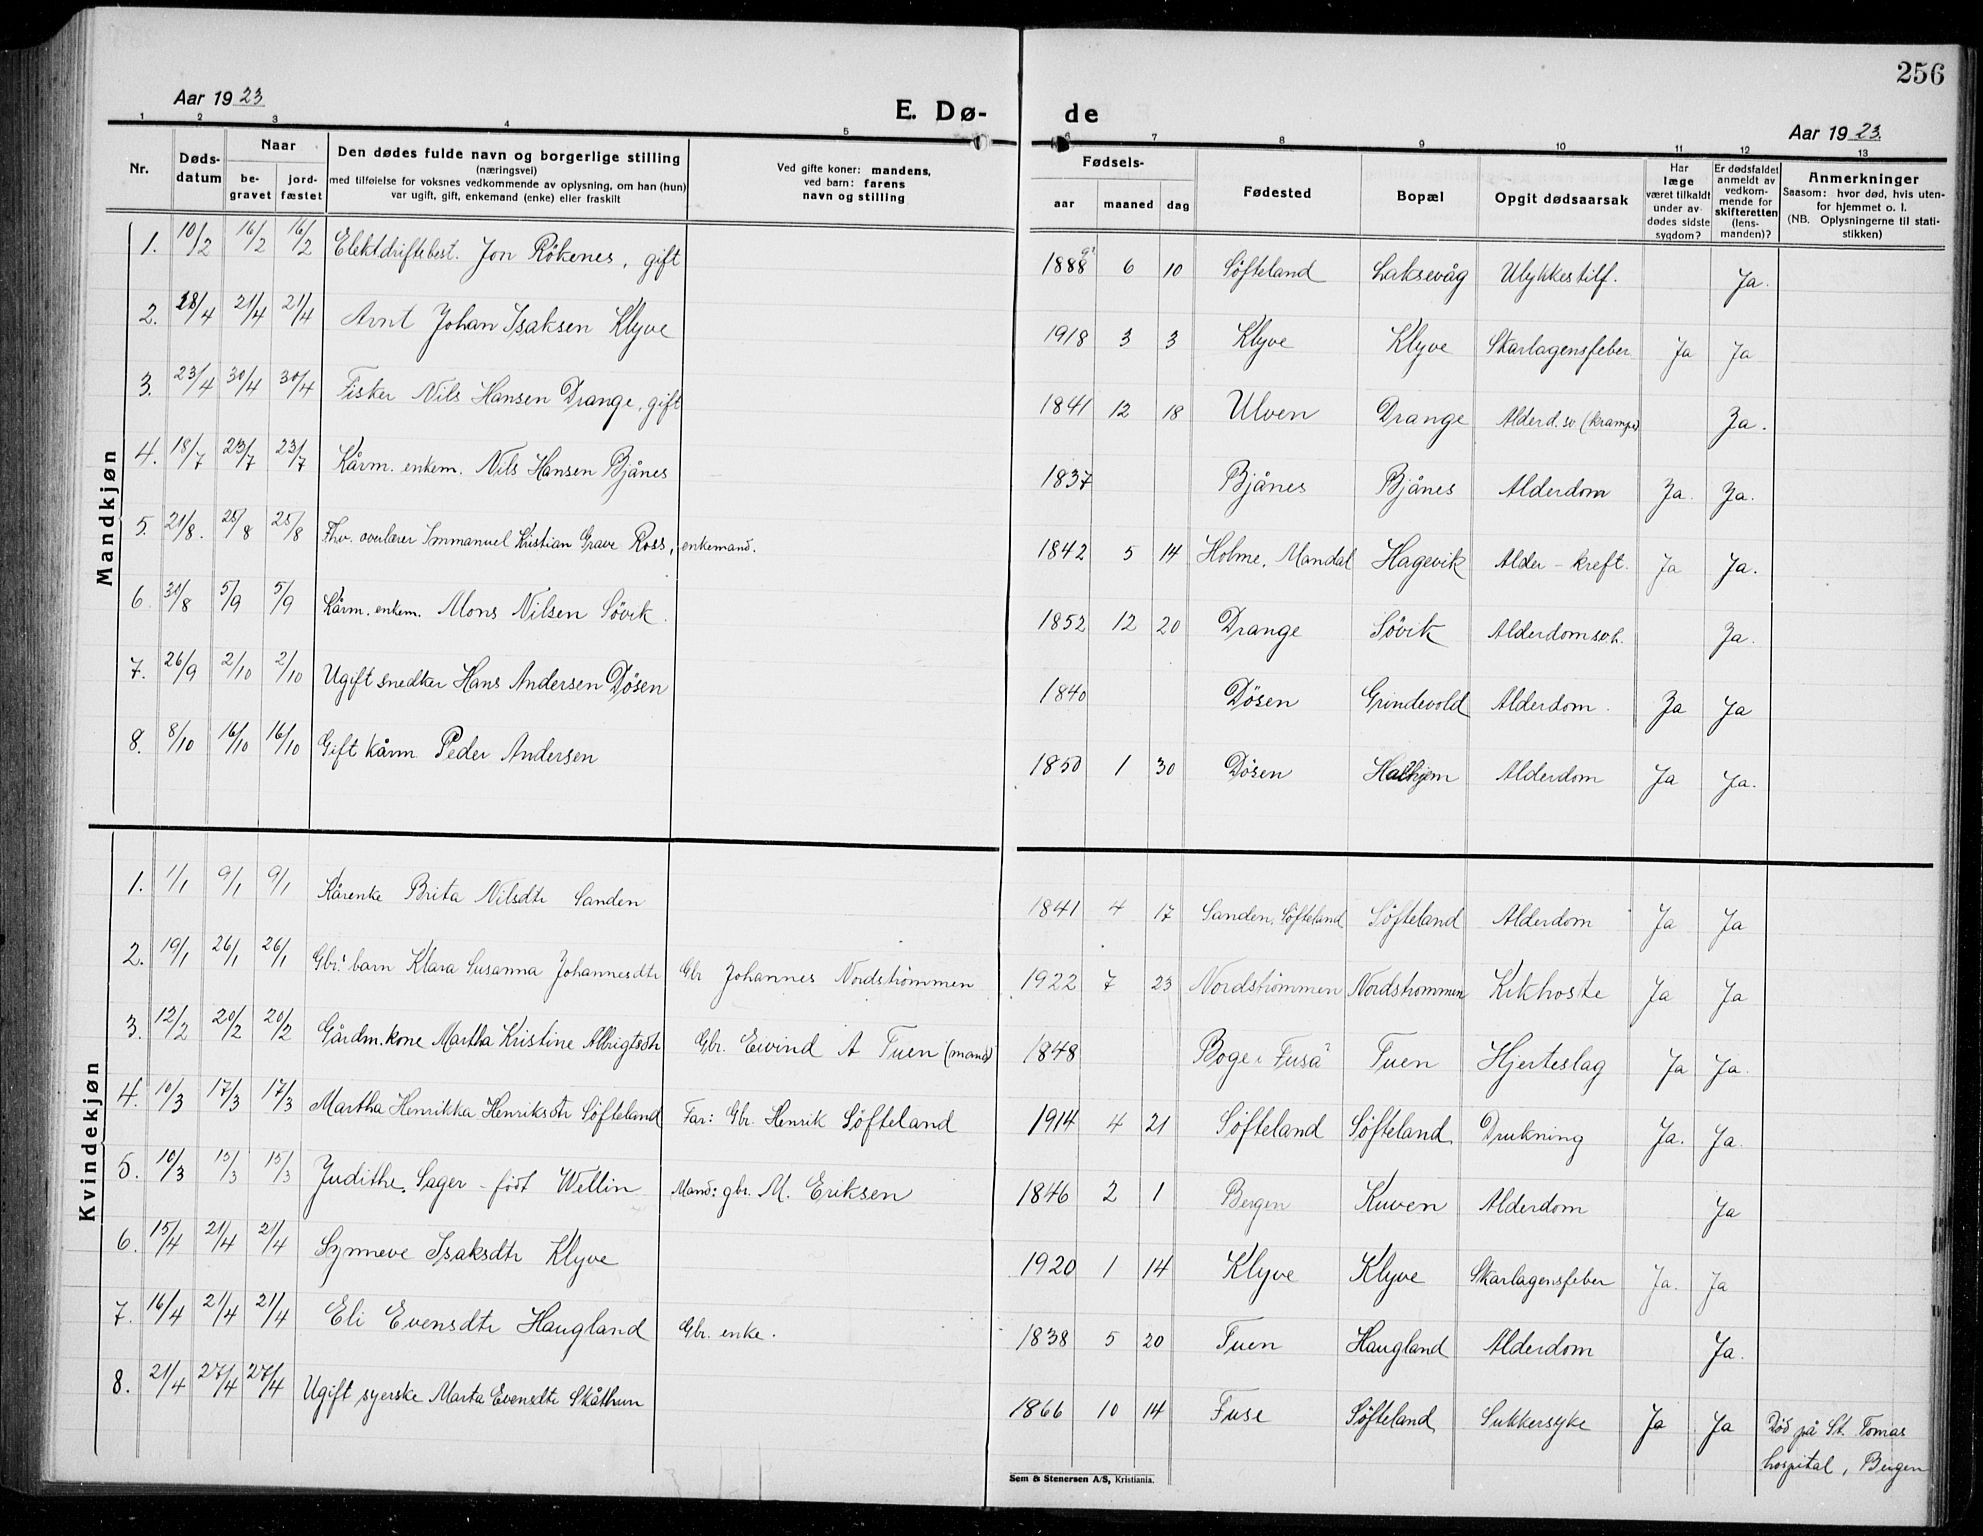 256
Aar 1923
E. Dø-
de
Aar 1923.
1 2 3 4 5 6 7 8 9 10 11 12 13
Nr.
Døds-
datum
Naar
be-
gravet
jord-
fæstet
Den dødes fulde navn og borgerlige stilling
(næringsvei)
med tilføielse for voksnes vedkommende av oplysning, om han (hun)
var ugift, gift, enkemand (enke) eller fraskilt
Ved gifte koner: mandens,
ved barn: farens
navn og stilling
Fødsels-
aar maaned dag
Fødested
Bopæl
Opgit dødsaarsak
Har
læge
været tilkaldt
under av-
dødes sidste
sygdom?
Er dødsfaldet
anmeldt av
vedkom-
mende for
skifteretten
(lens-
manden)?
Anmerkninger
Saasom: hvor død, hvis uten-
for hjemmet o. l.
(NB. Oplysningerne til stati-
stikken)
Mandkjøn
1. 10/2 16/2 16/2 Elektdriftebest. Jon Rökenes, gift 1888 6 10 Söfteland Laksevåg Ulykkestilf. Ja.
2. 18/4 21/4 21/4 Arnt Johan Isaksen Klyve 1918 3 3 Klyve Klyve Skarlagensfeber Ja Ja
3. 23/4 30/4 30/4 Fisker Nils Hansen Drange, gift 1841 12 18 Ulven Drange Alderd. so (krampe) Ja.
4. 18/7 23/7 23/7 Kårm. enkem. Nils Hansen Bjånes 1837 Bjånes Bjånes Alderdom Ja. Ja.
5. 21/8. 25/8 25/8 Fhv. overlærer Immanuel Kristian Grave Ross, enkemand. 1842 5 14 Holme, Mandal Hagevik Alder - kreft. Ja Ja.
6. 30/8 5/9 5/9 Kårm. enkem. Mons Nilsen Sövik. 1852 12 20 Drange Sövik Alderdomsvh. Ja.
7. 26/9 2/10 2/10 Ugift snedker Hans Andersen Dösen 1840 Dösen Grindevold Alderdom. Ja Ja
8. 8/10 16/10 16/10 Gift kårm Peder Andersen 1850 1 30 Dösen Halhjem Alderdom Ja Ja.
Kvindekjøn
1. 1/1 9/1 9/1 Kårenke Brita Nilsdtr Sanden 1841 4 17 Sanden, Söfteland Söfteland Alderdom Ja Ja
2. 19/1 26/1 26/1 Gbr: barn Klara Susanna Johannesdtr Gbr Johannes Nordströmmen 1922 7 23 Nordströmmen Nordstrommen Kikhoste Ja Ja
3. 12/2 20/2 20/2 Gårdm. kone Martha Kristine Albrigtsdtr Gbr. Eivind A Tuen (mand) 1848 Boge i Fusa Tuen Hjerteslag Ja Ja.
4. 10/3 17/3 17/3 Martha Henrikka Henriksdtr Söfteland Far: Gbr. Henrik Söfteland 1914 4 21 Söfteland Söfteland Drukning Ja. Ja.
5. 10/3 15/3 15/3 Judithe Sager - född Wellin Mand: gbr. M. Eriksen 1846 2 1 Bergen Kuven Alderdom Ja
6. 15/4 21/4 21/4 Synneve Isaksdtr Klyve 1920 1 14 Klyve Klyve Skarlagensfeber Ja. Ja
7. 16/4 21/4 21/4 Eli Evensdtr Haugland Gbr. enke. 1838 5 20 Tuen Haugland Alderdom Ja.
8. 21/4 27/4 27/4 Ugift syerske Marta Evensdtr Skåthun 1866 10 14 Fuse Söfteland Sukkersyke Ja Ja Död på St. Tomas
hospital, Bergen
Sem & Stenersen A/S, Kristiania.